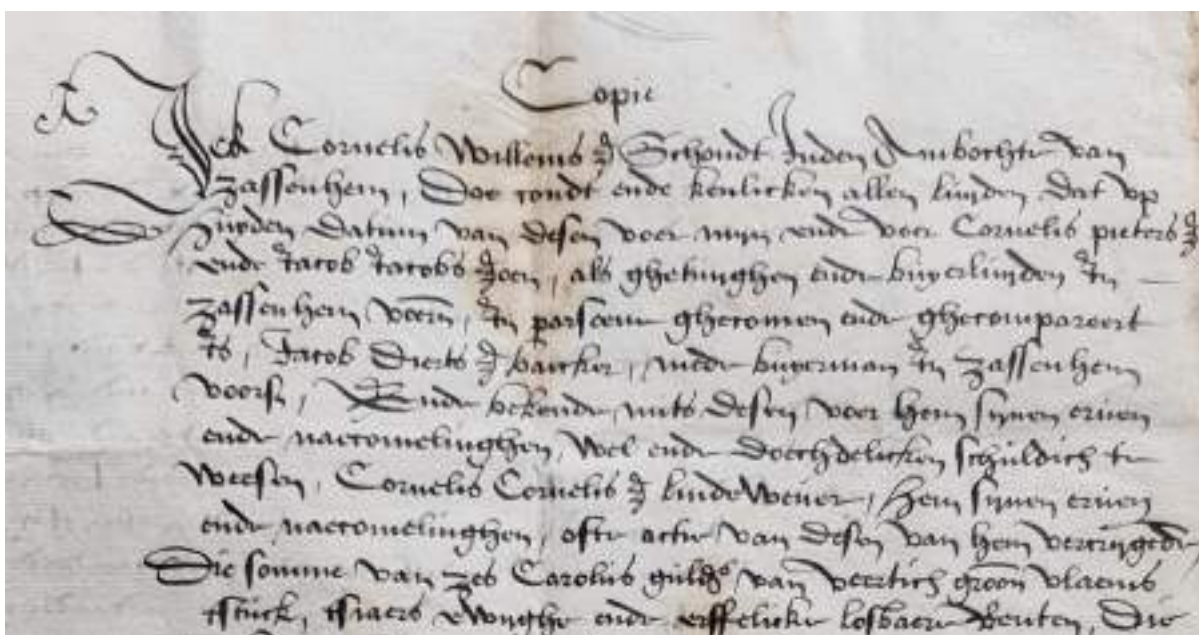 Copie
Ick Cornelis Willems z Schoudt Inden Ambochte van
Zassenhem, Doe condt ende kenlicken allen luyden dat up
huyden datum van desen voer myn ende voer Cornelis pieters z
ende Jacob Jacobs zoen, als ghetuughen ende buyerluyden In
Zassenhem voern, In parsoene ghecomen ende ghecompareert
Is, Jacob Dierts z backer, mede buyerman In Zassenhem
voors, Ende bekende mits desen voer hem synen erven
ende naecomelinghen, wel ende doechdelicken schuldich te
weesen, Cornelis Cornelis z lindewever, hem synen erven
ende naecomelinghen, ofte actie van desen van hem vercrygede
Die somme van zes Carolus guld van veertich groon vlaems
tstuck, tsiaers ewyghe ende erffelicke losbaere Renten, Die